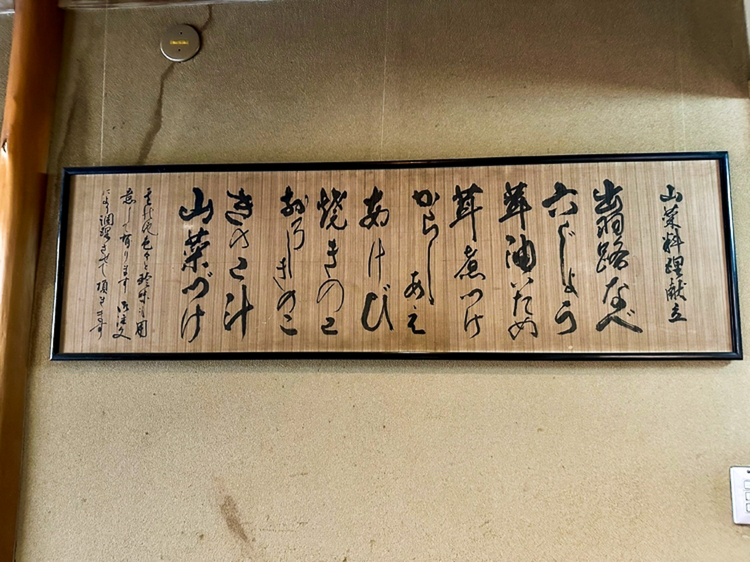 山菜料理献立
翁路なべ
六べじょう
茸油いため
茸煮つけ
からしあえ
あけび
焼きのこ
おろしきのこ
きのこ汁
山菜づけ
其の他色々と珍味も用
意して有ります 御注文
により調理させて頂きます